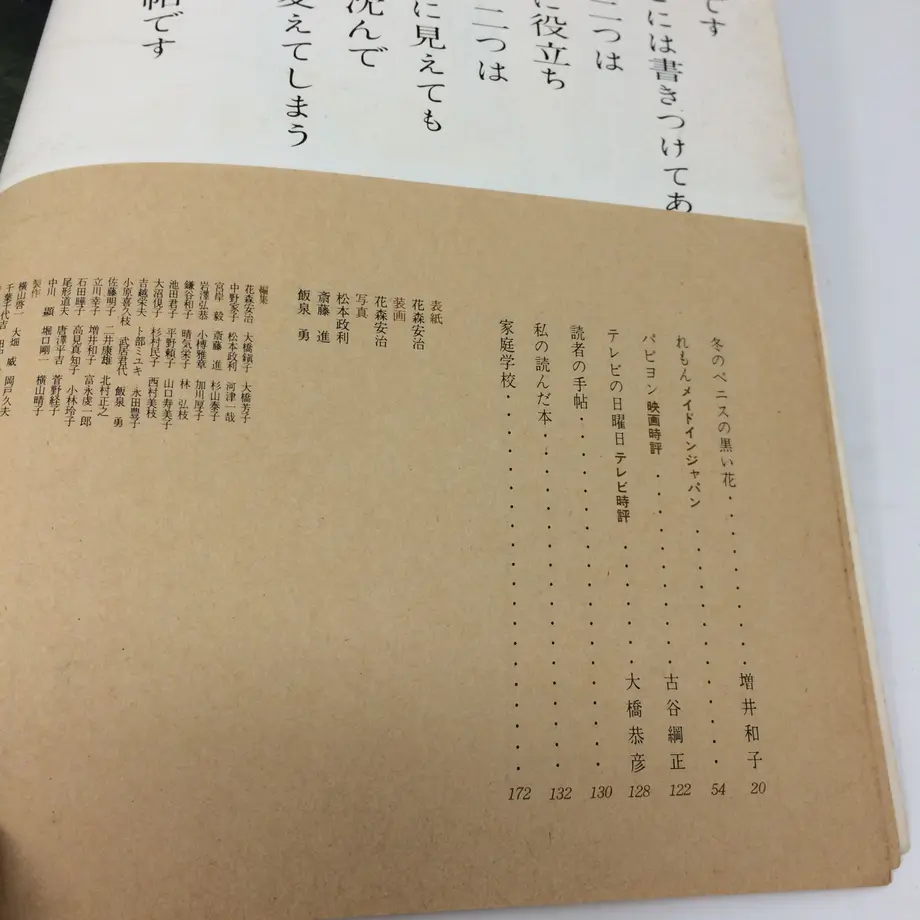 です
には書きつけてあ
二つは
に役立ち
二つは
に見えても
沈んで
変えてしまう
帖です
冬のベニスの黒い花・・・・・・・・増井和子 20
れもんメイドインジャパン・・・・・・・・・ 54
パピヨン 映画時評・・・・・・・・古谷綱正 122
テレビの日曜日 テレビ時評・・・・大橋恭彦 128
読者の手帖・・・・・・・・・・・・・ 130
私の読んだ本・・・・・・・・・・・・ 132
家庭学校・・・・・・・・・・・・・ 172
表紙
花森安治
装画
花森安治
写真
松本政利
斎藤 進
飯泉 勇
編集
花森安治 大橋鎭子 大橋芳子
中野家子 松本政利 河津一哉
宮岸 毅 斎藤 進 杉山泰子
岩澤弘恭 小榑雅章 加川厚子
鎌谷和子 晴気栄子 林 弘枝
池田君子 平野頼子 山口寿美子
大沼俔子 杉村民子 西村美枝
吉越栄夫 卜部ミユキ 永田豊子
小原喜久枝 武居君代 飯泉 勇
佐藤明子 二井康雄 北村正之
立川幸子 増井和子 富永虔一郎
石田暲子 高見真知子 小林玲子
尾形道夫 唐澤平吉 菅野経子
中川 顯 堀口剛一 横山晴子
製作
横山啓一 大畑 威 岡戸久夫
千葉千代吉